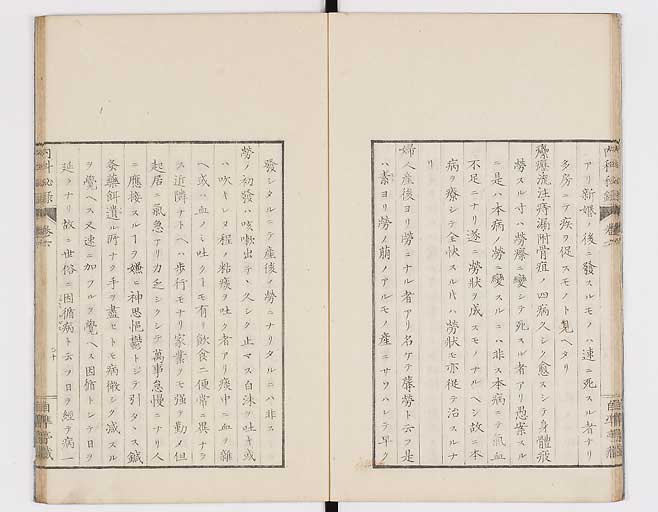 アリ新婚ノ後ニ發スルモノハ速ニ死スル者アリ
多房ニテ疾ヲ促スモノト見ヘタリ
瘰癧流注痔漏附骨疽ノ四病久シク愈スシテ身體疲
勞スル寸ハ勞瘵ニ變シテ死スル者アリ愚案スル
ニ是ハ本病ノ勞ニ變スルニハ非ス本病ニテ氣血
不足ニナリ遂ニ勞狀ヲ成スモノナルヘシ故ニ本
病ヲ療シテ全快スル片ハ勞狀モ亦從テ治スルナ
リ
婦人産後ヨリ勞ニナル者アリ名ケテ蓐勞ト云フ是
ハ素ヨリ勞ノ萠ノアルモノ産ニサソハレテ早ク
發シタルニテ産後ノ勞ニナリタルニハ非ス
勞ノ初發ハ咳嗽出テヽ久シク止マス白沫ヲ吐キ或
ハ吹キレヌ程ノ粘痰ヲ吐ク者アリ痰中ニ血ヲ雜
ヘ或ハ血ノミ吐クヿモ有リ飲食二便常ニ異ナラ
ス近隣ナトヘハ歩行モナリ家業ヲモ强テ勤メ但
起居ニ氣急アリ力乏シクシテ萬事怠慢ニナリ人
ニ應接スルヿヲ嫌ヒ神思悒鬱トシテ引タヽス鍼
灸藥餌遺ル所ナク手ヲ盡セトモ病微シク減スル
ヲ覺ヘス又速ニ加フルヲ覺ヘス因循トシテ日ヲ
延ヲナリ故ニ世俗ニ因循病ト云フ日ヲ經テ病一
内科秘録
卷六
二十
自準亭藏